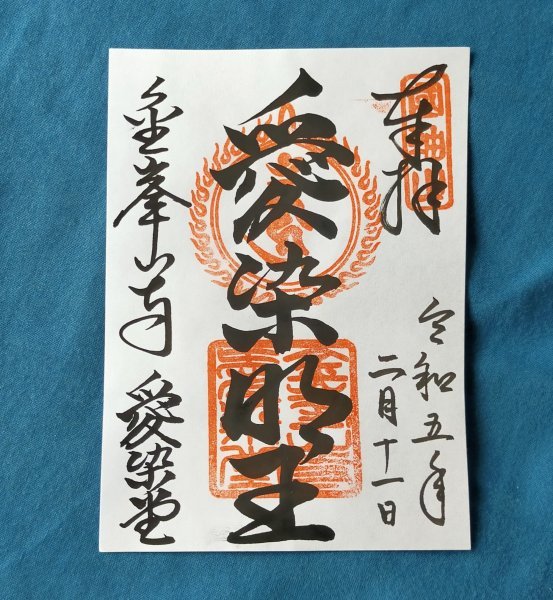 奉拝
令和五年
二月十一日
愛染明王
金峯山寺 愛染堂